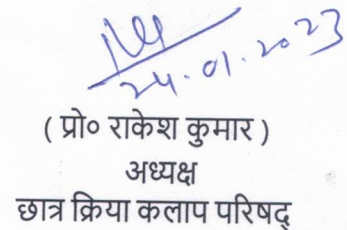 24.01.2023
( प्रो० राकेश कुमार )
अध्यक्ष
छात्र क्रिया कलाप परिषद्